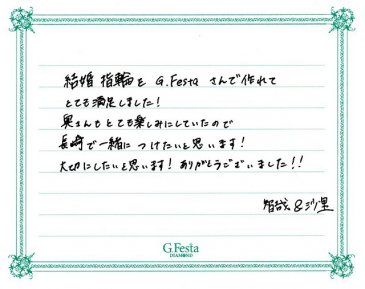 結婚指輪を G.Festa さんで作れて
とても満足しました!
奥さんもとても楽しみにしていたので
長崎で一緒に つけたいと思います!
大切にしたいと思います! ありがとうございました!!
智哉 & 沙里
G.Festa
DIAMOND